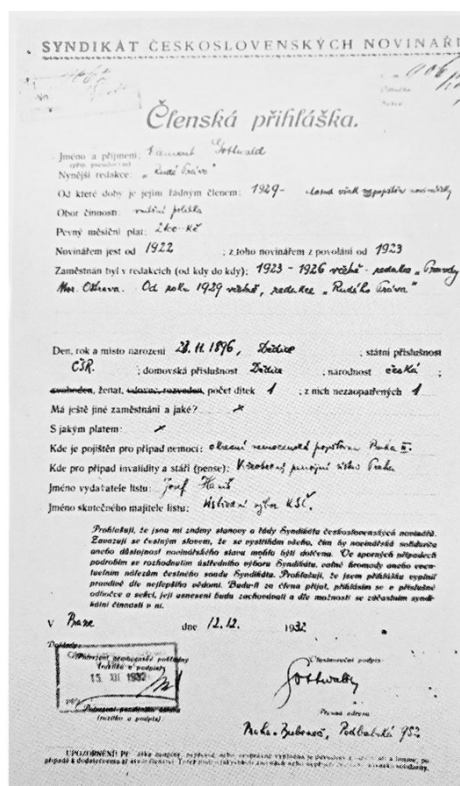 SYNDIKÁT ČESKOSLOVENSKÝCH NOVINÁŘ
Členská přihláška.
Jméno a příjmení: Klement Gottwald
Nynější redakce: „Rudé Právo"
Od které doby je jejím řádným členem: 1929-
Obor činnosti: vnitřní politika
Pevný měsíční plat: 2400 Kč
Novinářem jest od 1922 ; z toho novinářem z povolání od 1923
Zaměstnán byl v redakcích (od kdy do kdy): 1923 - 1926 včetně - redakce „Pravdy
Mor. Ostrava. Od roku 1929 včetně, redakce „Rudého Práva"
Den, rok a místo narození 23. 11. 1896, Dědice ; státní příslušnost
ČSR. ; domovská příslušnost Dědice ; národnost česká ;
svoboden, ženat, vdovec, rozveden, počet dítek 1 ; z nich nezaopatřených 1
Má ještě jiné zaměstnání a jaké?
S jakým platem:
Kde je pojištěn pro případ nemoci: okresní nemocenská pojišťovna Praha
Kde pro případ invalidity a stáří (pense): Všeobecný penzijní ústav Praha
Jméno vydavatele listu: Josef
Jméno skutečného majitele listu: Ústřední výbor KSČ.
Prohlašuji, že jsou mi známy stanovy a řády Syndikátu československých novinářů.
Zavazuji se čestným slovem, že se vystříhám všeho, čím by novinářská solidarita
anebo důstojnost novinářského stavu mohla býti dotčena. Ve sporných případech
podrobím se rozhodnutím ústředního výboru Syndikátu, valné hromady anebo even-
tuelním nálezům čestného soudu Syndikátu. Prohlašuji, že jsem přihlášku vyplnil
pravdivě dle nejlepšího vědomí. Budu-li za člena přijat, přihlásím se v příslušné
odbočce a sekci, její usnesení budu zachovávati a dle možnosti se zúčastním syndi-
kální činnosti v ní.
V Praze dne 12. 12. 1932
15 XII 1932
(razítko a podpis)
Vlastnoruční podpis:
Gottwald
Přesná adresa
Praha-Bubeneč, Podbabská 952
UPOZORNĚNÍ!